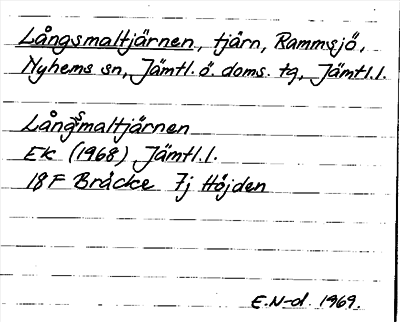 Långsmaltjärnen, tjärn, Rammsjö,
Nyhems sn, Jämtl. ö. doms. tg, Jämtl.l.
Långsmaltjärnen
Ek (1968) Jämtl.l.
18F Bräcke 7j Höjden
E.N-d. 1969.